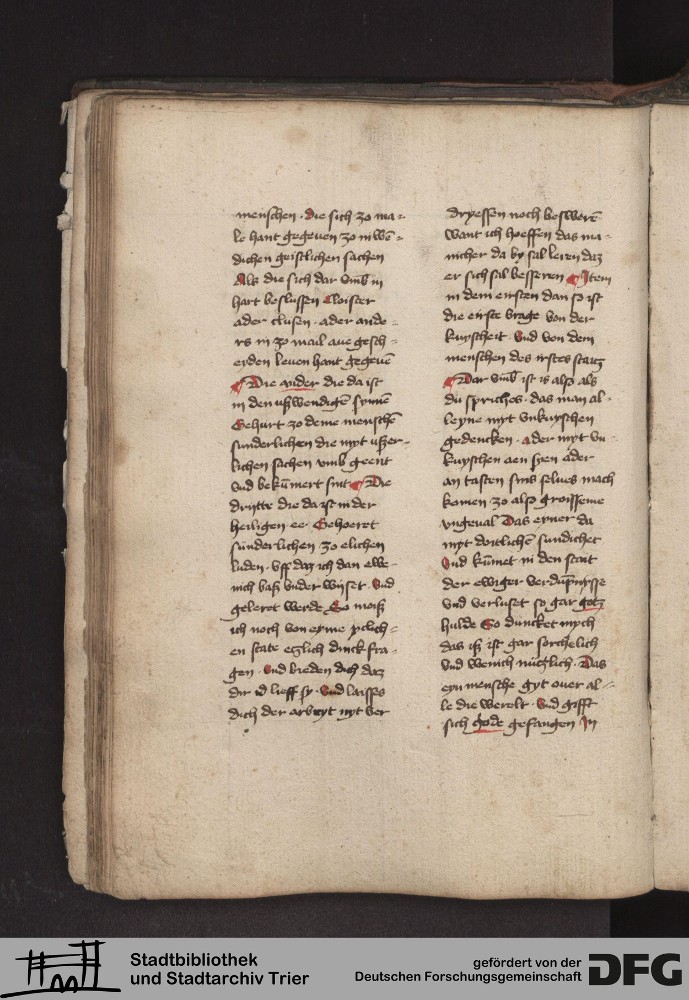 menschen · die sich zo ma=
le hant gegeuen zo inwē=
dichen geistlichen sachen
Als die sich dar vmb in
hart beslussen Cloister
ader clusen · ader ande=
rs in zo mail aue gesch=
eyden leuen hant gegeuē
Die ander die da ist
in den vßwendigē synnē
Gehurt zo deme menschē
sunderlichen die myt vßer=
lichen sachen vmb geent
vnd bekūmert sint Die
drytte die da ist in der
heiligen ee · Gehoeret
sunderlichen zo elichen
luden · vff daz ich dan elbe=
nich baß vnder wyset · vnd
geleret werde So moiß
ich noch von eyme yclich=
en state etzlich dinck fra=
gen · vnd bieden dich daz
dir id lieff sy · vnd laisses
dich der arbeyt nyt ver
dryessen noch beswerē
want ich hoeffen das ma=
nicher da by sal leren daz
er sich sal besseren Item
in dem eirsten dan so ist
die eirste vrage von der
kuyscheit · vnd von dem
menschen des irstes staitz
Dar vmb ist is also als
du spriches · das man al=
leyne myt vnkuyschen
gedencken · ader myt vn=
kuyschen aen syen ader
an tasten sins selues mach
komen zo also groisseme
vngeual Das eyner da
myt doitlichē sundichet
vnd kūmet in den stait
der ewiger verdūpnysse
vnd verluset so gar gotz
hulde So duncket mych
das iß ist gar sorchelich
vnd wenich nützlich · Das
eyn mensche gyt ouer al=
le die werelt · vnd gifft
sich gode gefangen In
Stadtbibliothek
und Stadtarchiv Trier
gefördert von der
Deutschen Forschungsgemeinschaft
DFG